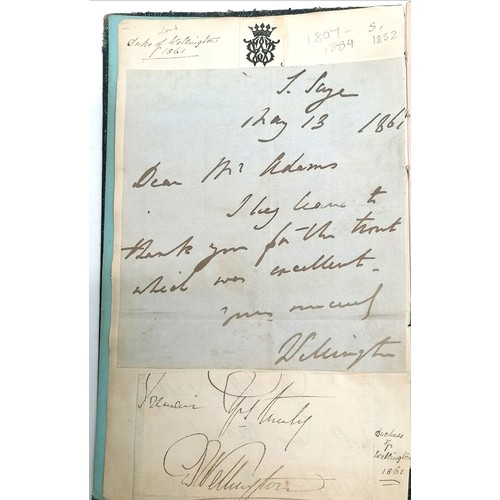 2nd
Duke of Wellington
1861
1807-
1884
S.
1852
S. Saye
May 13 1861
Dear Mr Adams
I beg leave to
thank you for the trout
which was excellent.
Yours sincerely
Wellington
I remain Yrs truly
Wellington
Duchess
of
Wellington
1861